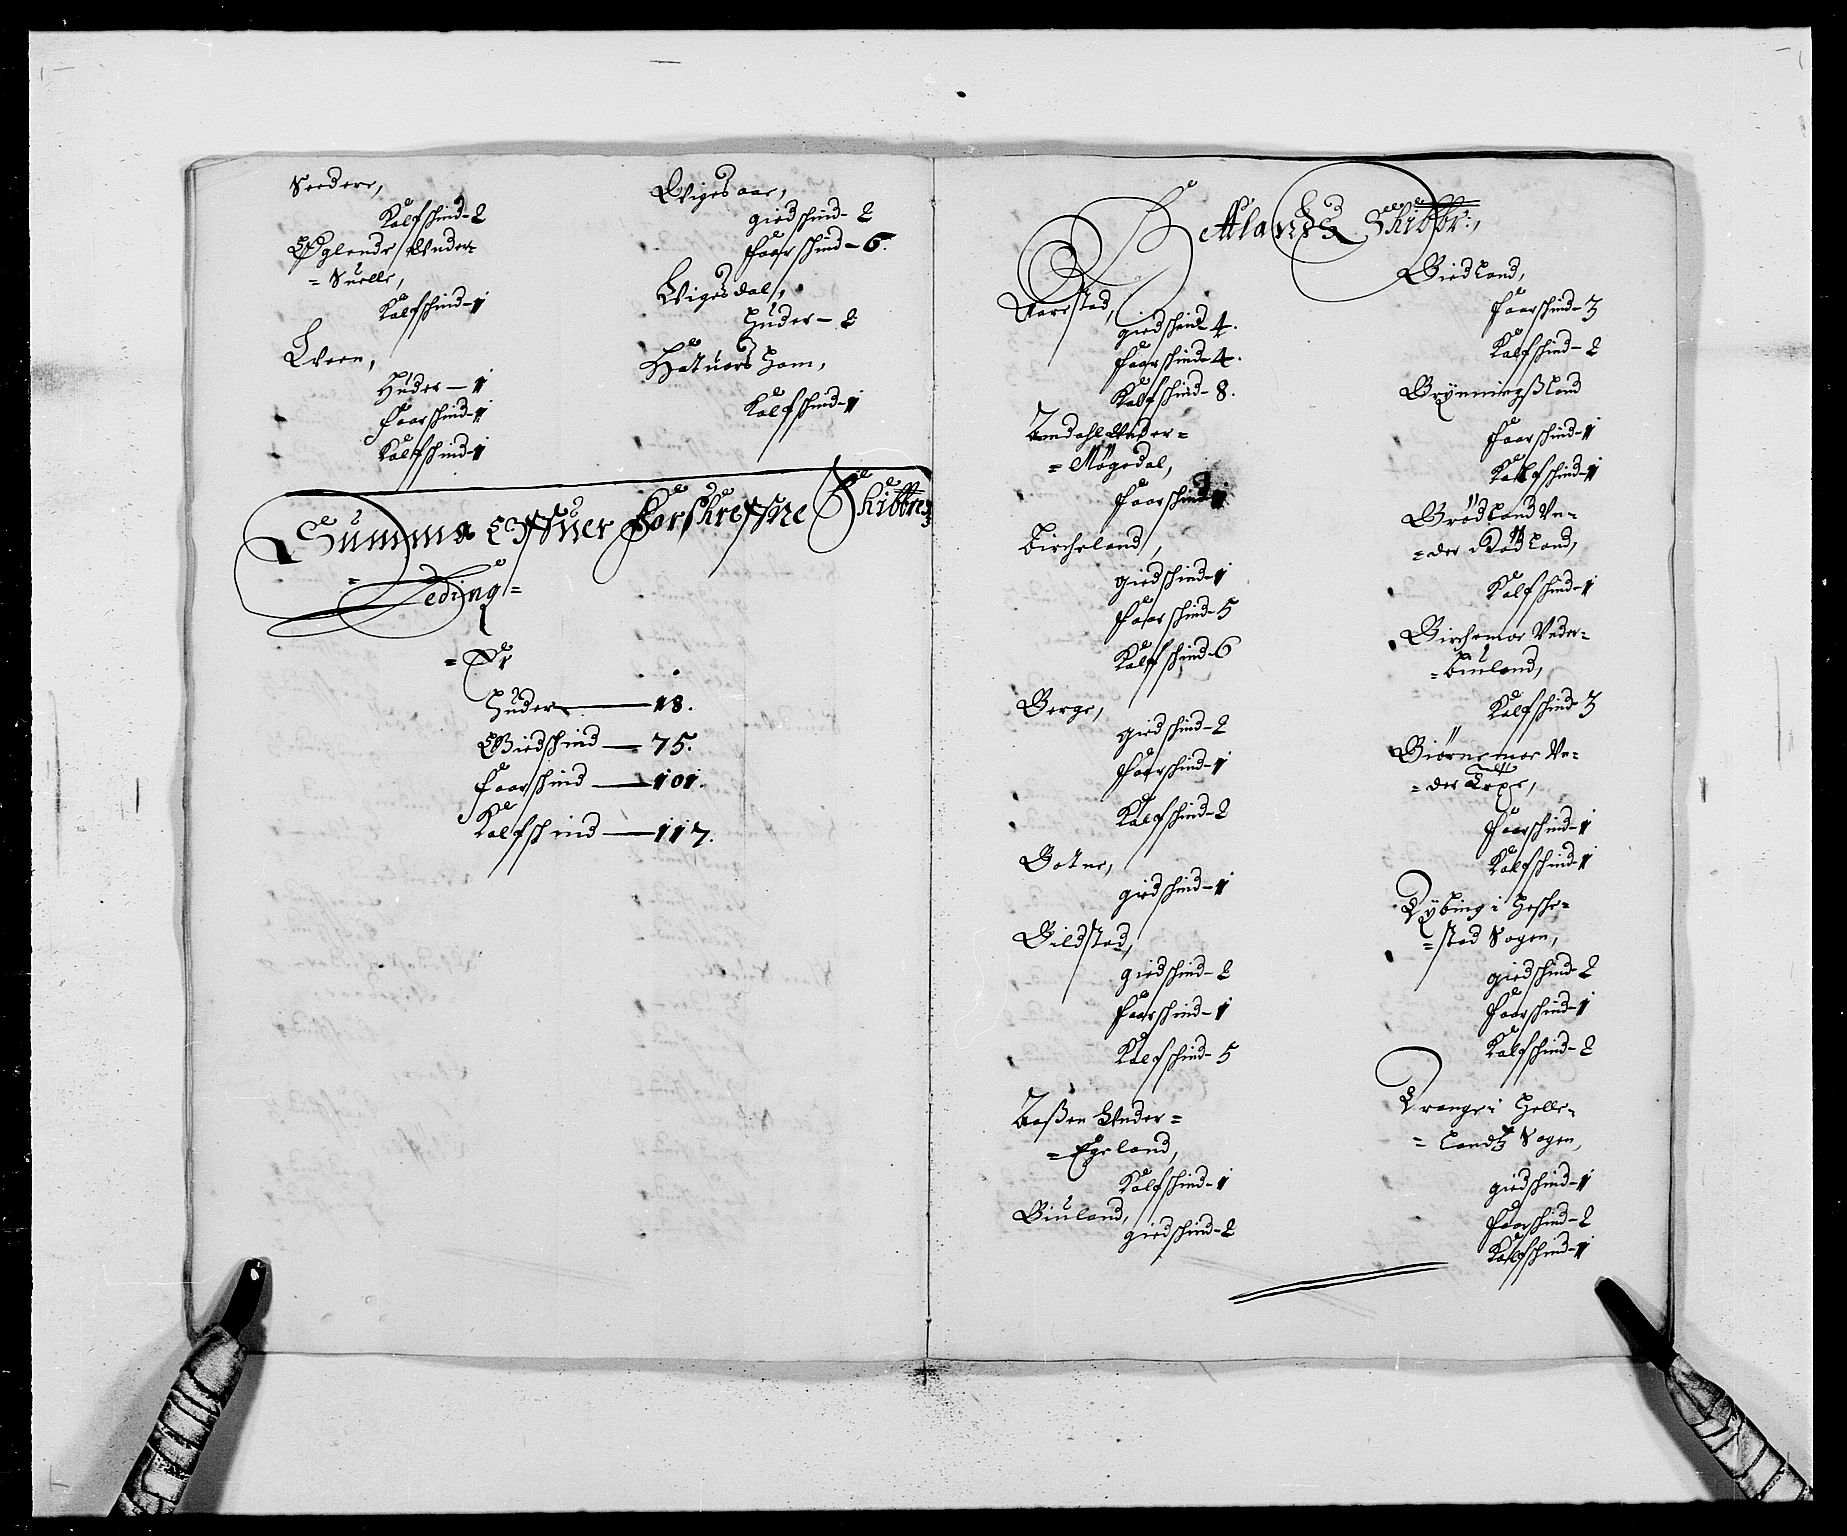 Kalfschind - 2
Øglende Under
= Suelle,
Kalfschind - 1
Hueen,
Huder - 1
Faarschind - 1
Kalfschind - 1
giedschind - 2
Faarschind - 6.
Wigesdal,
Huder - 2
Kalfschind - 1
Summa Offuer forschreffne Skibbre:
= Leding =
= Er
Huder — 18.
Giedschind — 75.
Faarschind — 101.
Kalfschind — 117.
Hetlandz Skibbr:,
Aarrstad,
giedschind - 4.
Faarschind - 4.
Kalfschind - 8.
Amdahl Under =
= Møgedal,
Faarschind - 1
Bircheland,
giedschind - 1
Faarschind - 5
Kalfschind - 6
Berge,
giedschind - 2
Faarschind - 1
Kalfschind - 2
Botne,
giedschind - 1
Bildstad,
giedschind - 2
Faarschind - 1
Kalfschind - 5
Aaßen Under =
= Egeland,
Kalfschind - 1
Biuland,
giedschind - 2
Giedland,
Faarschind - 3
Kalfschind - 2
Brynningßland
Faarschind - 1
Kalfschind - 1
Brødland Un-
= der Rødland,
Kalfschind - 1
Birchemoe Under-
= Biuland,
Kalfschind - 3
Biørnemoe Un-
= der
Faarschind - 1
Kalfschind - 1
Dybing i Heshe-
= stad Sogen,
giedschind - 2
Faarschind - 1
Kalfschind - 2
Drange i Helle-
= landtz Sogen,
giedschind - 1
Faarschind - 2
Kalfschind - 1